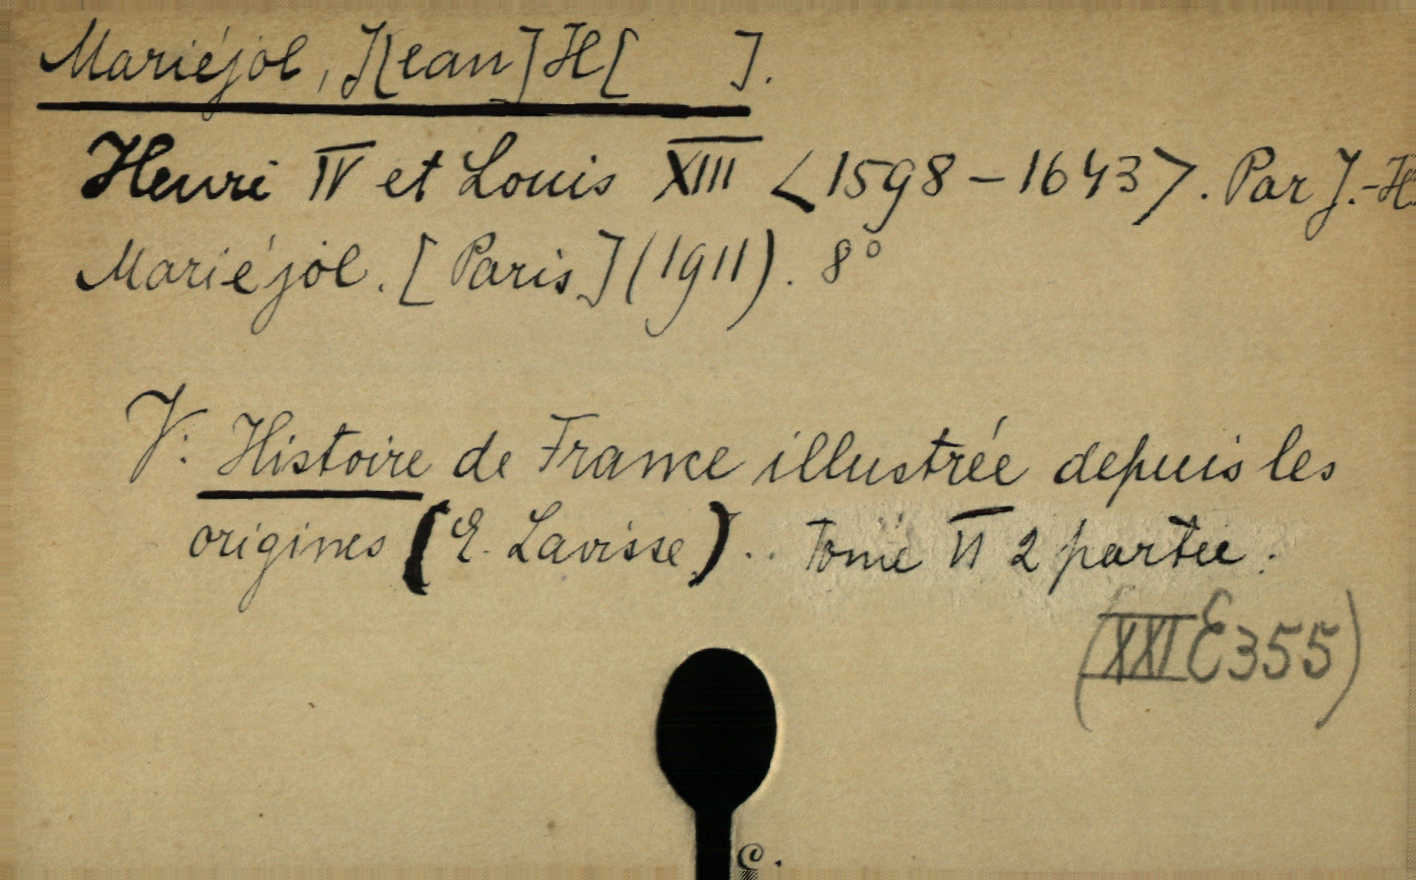 Mariéjol, J[ean] H[ ].
Henri IV et Louis XIII <1598-1643>. Par J.-H.
Mariéjol. [Paris] (1911). 8°
V: Histoire de France illustrée depuis les
origines (E. Lavisse).. Tome VI 2 partie.
(XXI E 355)
C.